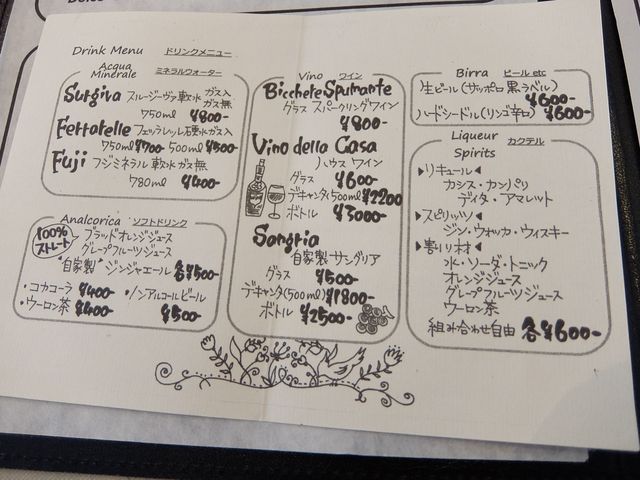 Drink Menu ドリンクメニュー
Acqua
Minerale ミネラルウォーター
Surgiva スルジーヴァ軟水 ガス入
ガス無
750ml ¥800-
Ferrarelle フェッラレッレ硬水ガス入
750ml ¥700- 500ml ¥500-
Fuji フジミネラル 軟水 ガス無
780ml ¥400-
Analcorica ソフトドリンク
100%
ストレート
ブラッドオレンジジュース
グレープフルーツジュース
"自家製"ジンジャエール 各¥500-
・コカコーラ ¥400- ・ノンアルコールビール
・ウーロン茶 ¥400- ¥500-
Vino ワイン
Bicchere Spumante
グラス スパークリングワイン
¥800-
Vino della Casa
ハウス ワイン
グラス ¥600-
デキャンタ(500ml) ¥2200
ボトル ¥3000-
Sangria
自家製 サングリア
グラス ¥500-
デキャンタ(500ml) ¥1800-
ボトル ¥2500-
Birra ビール etc
生ビール(サッポロ 黒ラベル)
¥600-
ハードシードル(リンゴ辛口) ¥600-
Liqueur カクテル
Spirits
▶リキュール◀
カシス・カンパリ
ディタ・アマレット
▶スピリッツ◀
ジン・ウォッカ・ウィスキー
▶割り材◀
水・ソーダ・トニック
オレンジジュース
グレープフルーツジュース
ウーロン茶
組み合わせ自由 各¥600-